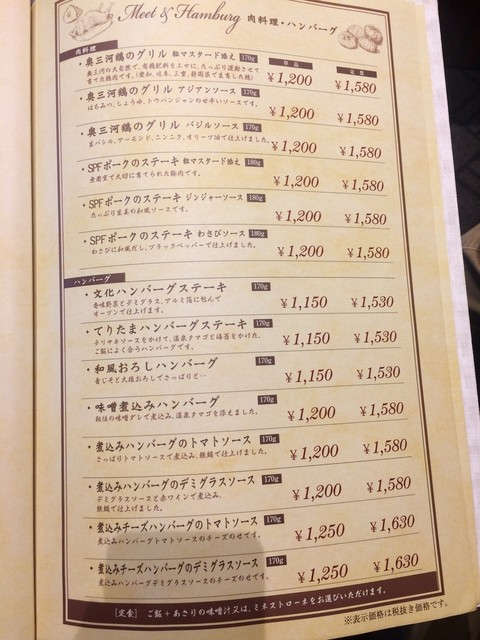 Meet & Hamburg 肉料理・ハンバーグ
肉料理
単品 定食
・奥三河鶏のグリル 粒マスタード添え 170g ¥1,200 ¥1,580
奥三河の大自然で、有機肥料をエサに、たっぷり運動させて
育てた鶏肉です。(愛知、岐阜、三重、静岡県で生育した鶏)
・奥三河鶏のグリル アジアンソース 170g ¥1,200 ¥1,580
はちみつ、しょうゆ、トウバンジャンの甘辛いソースです。
・奥三河鶏のグリル バジルソース 170g ¥1,200 ¥1,580
生バジル、アーモンド、ニンニク、オリーブ油で仕上げました。
・SPFポークのステーキ 粒マスタード添え 180g ¥1,200 ¥1,580
無菌室で大切に育てられた豚肉です。
・SPFポークのステーキ ジンジャーソース 180g ¥1,200 ¥1,580
たっぷり生姜の和風ソースです。
・SPFポークのステーキ わさびソース 180g ¥1,200 ¥1,580
わさびに和風だし、ブラックペッパーで仕上げました。
ハンバーグ
・文化ハンバーグステーキ 170g ¥1,150 ¥1,530
香味野菜とデミグラス、アルミ箔に包んで
オーブンで仕上げます。
・てりたまハンバーグステーキ 170g ¥1,150 ¥1,530
テリヤキソースをかけて、温泉タマゴと海苔をかけた、
ご飯によく合うハンバーグです。
・和風おろしハンバーグ 170g ¥1,150 ¥1,530
青じそと大根おろしてさっぱりと…
・味噌煮込みハンバーグ 170g ¥1,200 ¥1,580
自佐の味噌ダレで煮込み、温泉タマゴを添えました。
・煮込みハンバーグのトマトソース 170g ¥1,200 ¥1,580
さっぱりトマトソースで煮込み、鉄鍋で仕上げました。
・煮込みハンバーグのデミグラスソース 170g ¥1,200 ¥1,580
デミグラスソースと赤ワインで煮込み、
鉄鍋で仕上げました。
・煮込みチーズハンバーグのトマトソース 170g ¥1,250 ¥1,630
煮込みハンバーグトマトソースのチーズのせです。
・煮込みチーズハンバーグのデミグラスソース 170g ¥1,250 ¥1,630
煮込みハンバーグデミグラスソースのチーズのせです。
[定食] ご飯+あさりの味噌汁又は、ミネストローネをお選びいただけます。
※表示価格は税抜き価格です。